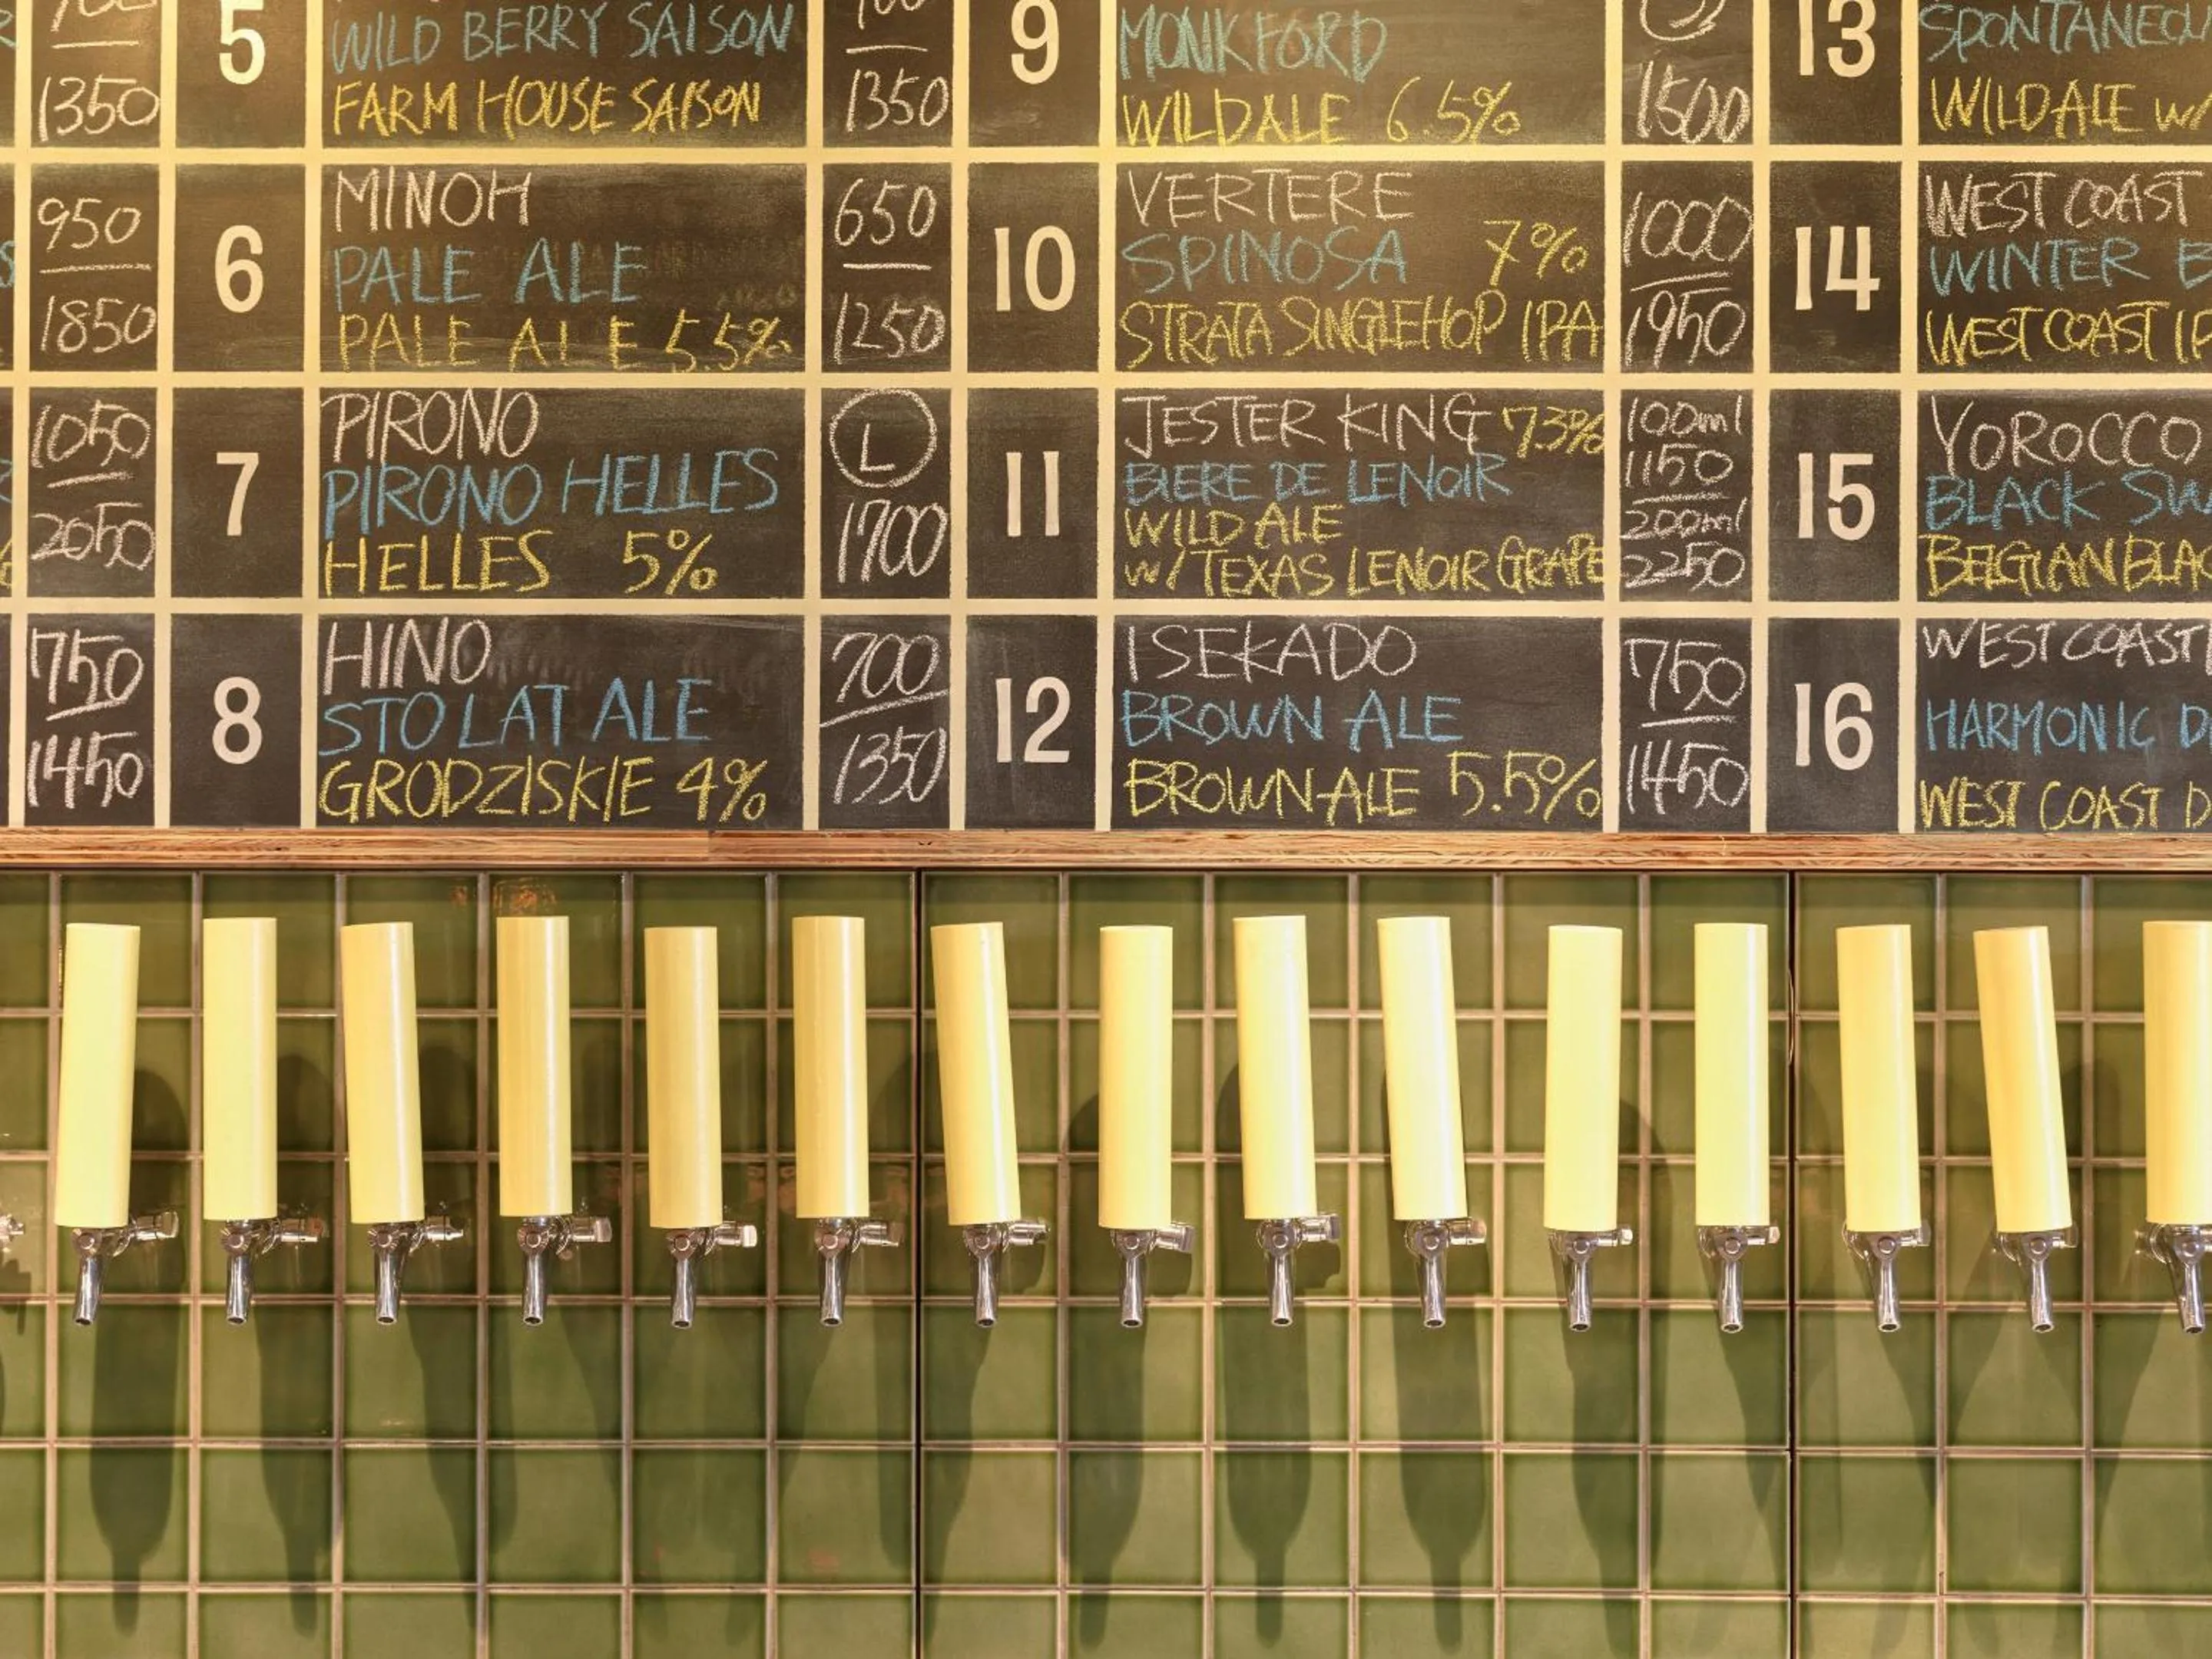 1350
950
1850
1050
2050
750
1450
5
WILD BERRY SAISON
FARM HOUSE SAISON
1350
6
MINOH
PALE ALE
PALE ALE 5.5%
650
1250
7
PIRONO
PIRONO HELLES
HELLES 5%
L
1700
8
HINO
STO LAT ALE
GRODZISKIE 4%
700
1350
9
MONKFORD
WILDALE 6.5%
1500
10
VERTERE
SPINOSA 7%
STRATA SINGLEHOP IPA
1000
1950
11
JESTER KING 73%
BIERE DE LENOIR
WILD ALE
W/TEXAS LENOIR GRAPE
100ml
1150
200ml
2250
12
ISEKADO
BROWN ALE
BROWN ALE 5.5%
750
1450
13
WILDALE W/
14
WEST COAST
WINTER
WEST COAST
15
YOROCCO
BLACK
BELGIAN
16
WEST COAST
HARMONIC
WEST COAST